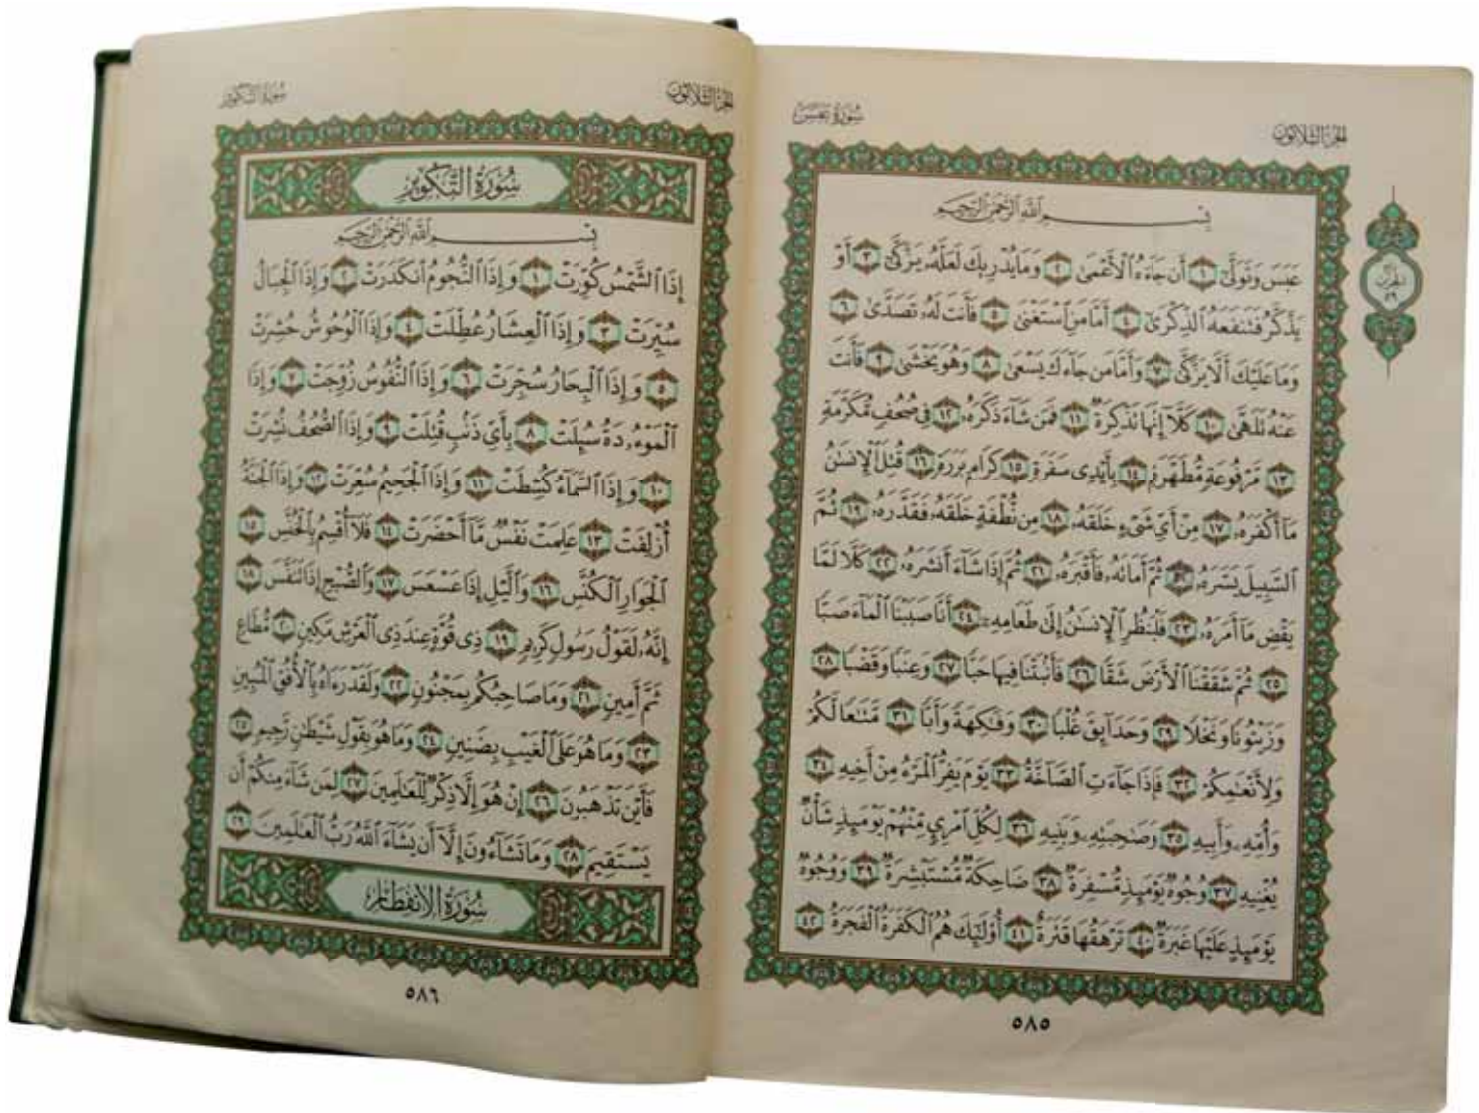 الجزء الثلاثون
سورة عبس
بِسْمِ ٱللَّهِ ٱلرَّحْمَٰنِ ٱلرَّحِيمِ
عَبَسَ وَتَوَلَّىٰٓ ١ أَن جَآءَهُ ٱلْأَعْمَىٰ ٢ وَمَا يُدْرِيكَ لَعَلَّهُۥ يَزَّكَّىٰٓ ٣ أَوْ
يَذَّكَّرُ فَتَنفَعَهُ ٱلذِّكْرَىٰٓ ٤ أَمَّا مَنِ ٱسْتَغْنَىٰ ٥ فَأَنتَ لَهُۥ تَصَدَّىٰ ٦
وَمَا عَلَيْكَ أَلَّا يَزَّكَّىٰ ٧ وَأَمَّا مَن جَآءَكَ يَسْعَىٰ ٨ وَهُوَ يَخْشَىٰ ٩ فَأَنتَ
عَنْهُ تَلَهَّىٰ ١٠ كَلَّآ إِنَّهَا تَذْكِرَةٌ ١١ فَمَن شَآءَ ذَكَرَهُۥ ١٢ فِى صُحُفٍ مُّكَرَّمَةٍ
١٣ مَّرْفُوعَةٍ مُّطَهَّرَةٍۭ ١٤ بِأَيْدِى سَفَرَةٍ ١٥ كِرَامٍۭ بَرَرَةٍ ١٦ قُتِلَ ٱلْإِنسَٰنُ
مَآ أَكْفَرَهُۥ ١٧ مِنْ أَىِّ شَىْءٍ خَلَقَهُۥ ١٨ مِن نُّطْفَةٍ خَلَقَهُۥ فَقَدَّرَهُۥ ١٩ ثُمَّ
ٱلسَّبِيلَ يَسَّرَهُۥ ٢٠ ثُمَّ أَمَاتَهُۥ فَأَقْبَرَهُۥ ٢١ ثُمَّ إِذَا شَآءَ أَنشَرَهُۥ ٢٢ كَلَّا لَمَّا
يَقْضِ مَآ أَمَرَهُۥ ٢٣ فَلْيَنظُرِ ٱلْإِنسَٰنُ إِلَىٰ طَعَامِهِۦٓ ٢٤ أَنَّا صَبَبْنَا ٱلْمَآءَ صَبًّا
٢٥ ثُمَّ شَقَقْنَا ٱلْأَرْضَ شَقًّا ٢٦ فَأَنۢبَتْنَا فِيهَا حَبًّا ٢٧ وَعِنَبًا وَقَضْبًا ٢٨
وَزَيْتُونًا وَنَخْلًا ٢٩ وَحَدَآئِقَ غُلْبًا ٣٠ وَفَٰكِهَةً وَأَبًّا ٣١ مَّتَٰعًا لَّكُمْ
وَلِأَنْعَٰمِكُمْ ٣٢ فَإِذَا جَآءَتِ ٱلصَّآخَّةُ ٣٣ يَوْمَ يَفِرُّ ٱلْمَرْءُ مِنْ أَخِيهِ ٣٤
وَأُمِّهِۦ وَأَبِيهِ ٣٥ وَصَٰحِبَتِهِۦ وَبَنِيهِ ٣٦ لِكُلِّ ٱمْرِئٍ مِّنْهُمْ يَوْمَئِذٍ شَأْنٌ
يُغْنِيهِ ٣٧ وُجُوهٌ يَوْمَئِذٍ مُّسْفِرَةٌ ٣٨ ضَاحِكَةٌ مُّسْتَبْشِرَةٌ ٣٩ وَوُجُوهٌ
يَوْمَئِذٍ عَلَيْهَا غَبَرَةٌ ٤٠ تَرْهَقُهَا قَتَرَةٌ ٤١ أُو۟لَٰٓئِكَ هُمُ ٱلْكَفَرَةُ ٱلْفَجَرَةُ ٤٢
الحزب
٥٩
٥٨٥
الجزء الثلاثون
سورة التكوير
سُورَةُ التَّكْوِيرِ
بِسْمِ ٱللَّهِ ٱلرَّحْمَٰنِ ٱلرَّحِيمِ
إِذَا ٱلشَّمْسُ كُوِّرَتْ ١ وَإِذَا ٱلنُّجُومُ ٱنكَدَرَتْ ٢ وَإِذَا ٱلْجِبَالُ
سُيِّرَتْ ٣ وَإِذَا ٱلْعِشَارُ عُطِّلَتْ ٤ وَإِذَا ٱلْوُحُوشُ حُشِرَتْ
٥ وَإِذَا ٱلْبِحَارُ سُجِّرَتْ ٦ وَإِذَا ٱلنُّفُوسُ زُوِّجَتْ ٧ وَإِذَا
ٱلْمَوْءُۥدَةُ سُئِلَتْ ٨ بِأَىِّ ذَنۢبٍ قُتِلَتْ ٩ وَإِذَا ٱلصُّحُفُ نُشِرَتْ
١٠ وَإِذَا ٱلسَّمَآءُ كُشِطَتْ ١١ وَإِذَا ٱلْجَحِيمُ سُعِّرَتْ ١٢ وَإِذَا ٱلْجَنَّةُ
أُزْلِفَتْ ١٣ عَلِمَتْ نَفْسٌ مَّآ أَحْضَرَتْ ١٤ فَلَآ أُقْسِمُ بِٱلْخُنَّسِ ١٥
ٱلْجَوَارِ ٱلْكُنَّسِ ١٦ وَٱلَّيْلِ إِذَا عَسْعَسَ ١٧ وَٱلصُّبْحِ إِذَا تَنَفَّسَ ١٨
إِنَّهُۥ لَقَوْلُ رَسُولٍ كَرِيمٍ ١٩ ذِى قُوَّةٍ عِندَ ذِى ٱلْعَرْشِ مَكِينٍ ٢٠ مُّطَاعٍ
ثَمَّ أَمِينٍ ٢١ وَمَا صَاحِبُكُم بِمَجْنُونٍ ٢٢ وَلَقَدْ رَءَاهُ بِٱلْأُفُقِ ٱلْمُبِينِ
٢٣ وَمَا هُوَ عَلَى ٱلْغَيْبِ بِضَنِينٍ ٢٤ وَمَا هُوَ بِقَوْلِ شَيْطَٰنٍ رَّجِيمٍ ٢٥
فَأَيْنَ تَذْهَبُونَ ٢٦ إِنْ هُوَ إِلَّا ذِكْرٌ لِّلْعَٰلَمِينَ ٢٧ لِمَن شَآءَ مِنكُمْ أَن
يَسْتَقِيمَ ٢٨ وَمَا تَشَآءُونَ إِلَّآ أَن يَشَآءَ ٱللَّهُ رَبُّ ٱلْعَٰلَمِينَ ٢٩
سُورَةُ الانفِطَارِ
٥٨٦